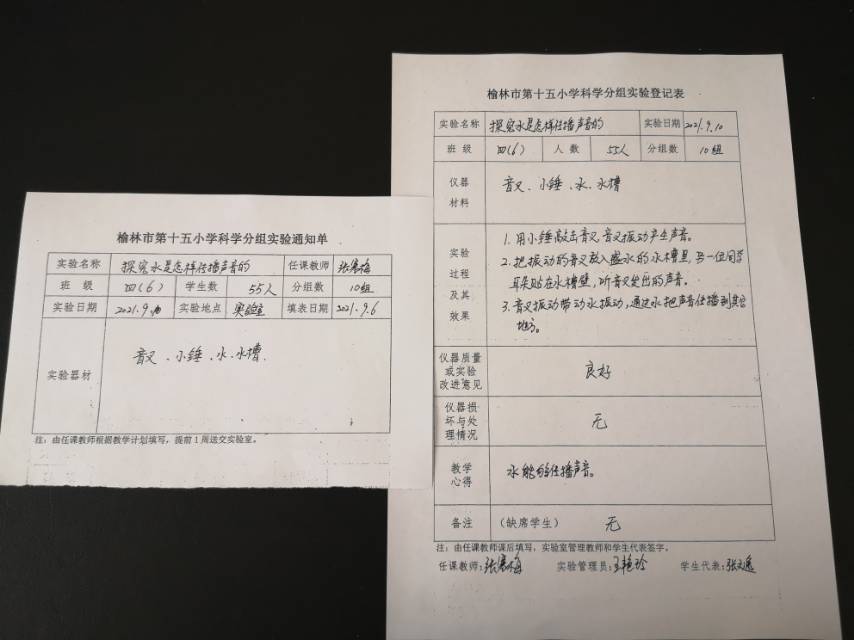 榆林市第十五小学科学分组实验通知单
实验名称 探究水是怎样传播声音的 任课教师 张寒梅
班 级 四(6) 学生数 55人 分组数 10组
实验日期 2021.9.10 实验地点 实验室 填表日期 2021.9.6
实验器材 音叉、小锤、水、水槽.
注:由任课教师根据教学计划填写,提前1周送交实验室。
榆林市第十五小学科学分组实验登记表
实验名称 探究水是怎样传播声音的 实验日期 2021.9.10
班 级 四(6) 人 数 55人 分组数 10组
仪器
材料
音叉、小锤、水、水槽
实验
过程
及其
效果
1. 用小锤敲击音叉,音叉振动产生声音。
2. 把振动的音叉放入盛水的水槽里,另一位同学
耳朵贴在水槽壁,听音叉发出的声音。
3. 音叉振动带动水振动,通过水把声音传播到其它
地方。
仪器质量
或实验
改进意见
良好
仪器损
坏与处
理情况
无
教学
心得
水能够传播声音。
备注 (缺席学生) 无
注:由任课教师课后填写,实验室管理教师和学生代表签字。
任课教师:张寒梅 实验管理员:王艳玲 学生代表:张文逸